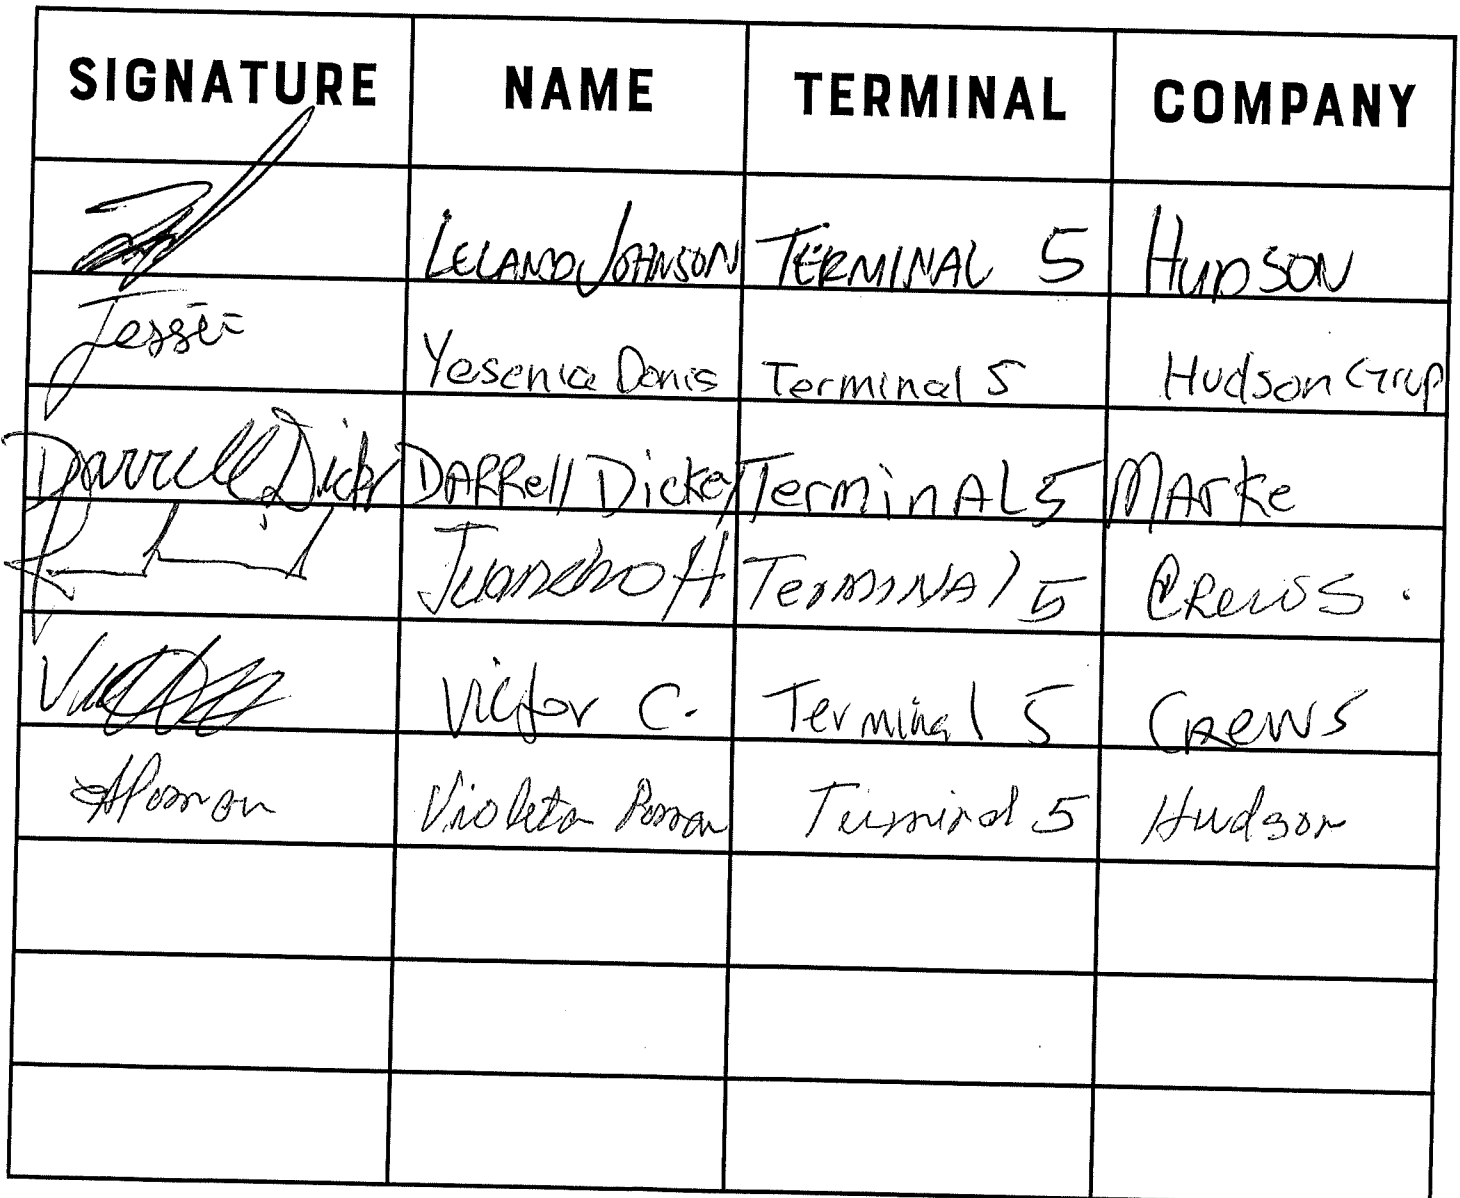 SIGNATURE NAME TERMINAL COMPANY
LELAND JOHNSON TERMINAL 5 HUDSON
Jessi Yesenia Donis Terminal 5 Hudson Grup
Darrell Dick DARRell Dickey TerminAL 5 MArke
Juancho H TerMINAl 5 CRewS.
Victor C. Terminal 5 CRewS
Violeta Terminal 5 Hudson